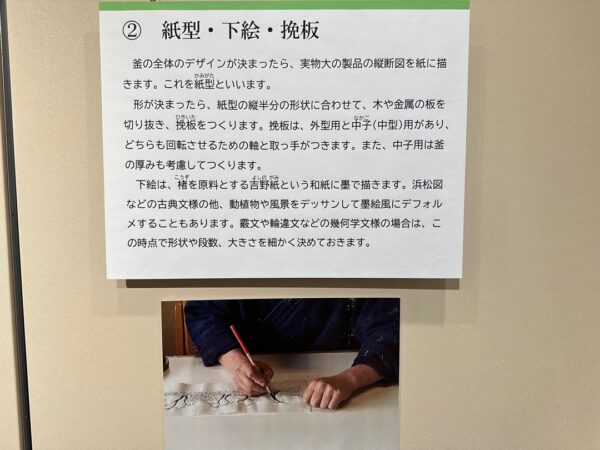 ② 紙型・下絵・挽板
釜の全体のデザインが決まったら、実物大の製品の縦断図を紙に描
かみがた
きます。これを紙型といいます。
形が決まったら、紙型の縦半分の形状に合わせて、木や金属の板を
ひきいた なかご
切り抜き、挽板をつくります。挽板は、外型用と中子(中型)用があり、
どちらも回転させるための軸と取っ手がつきます。また、中子用は釜
の厚みも考慮してつくります。
こうぞ よしの がみ
下絵は、楮を原料とする吉野紙という和紙に墨で描きます。浜松図
などの古典文様の他、動植物や風景をデッサンして墨絵風にデフォル
メすることもあります。霰文や輪違文などの幾何学文様の場合は、こ
の時点で形状や段数、大きさを細かく決めておきます。